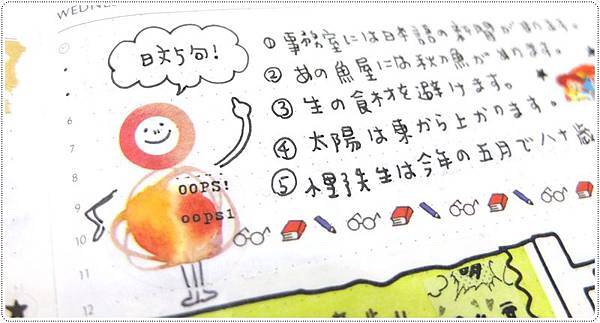 WEDNES
日文5句!
① 事務室には日本語の新聞があります。
② あの魚屋には秋の魚があります。
③ 生の食材を避けます。
④ 太陽は東から上がります。
⑤ 小野先生は今年の五月で八十歳
OOPS!
oops!
6
7
8
9
10
11
12
明